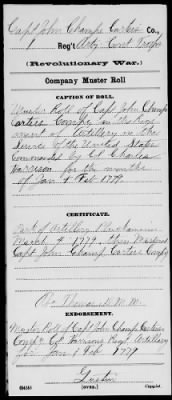 Capt John Champe Carter's Co.,
1 Reg't Arty Cont Troops
(Revolutionary War.)
Company Muster Roll
CAPTION OF ROLL.
Muster Roll of Capt John Champe
Carters Company in the Regi
ment of Artillery in the
Service of the United States
Commanded by Col Charles
Harrison for the months
of Jan & Feb 1779
CERTIFICATE.
Park of Artillery
March 4 1779 then Mustered
Capt John Champ Carters Compy
D. M. M.
ENDORSEMENT.
Muster Roll of Capt John Champ Carters
Compy & Col Harrisons Regt Artillery
for Jan & Feb 1779
(OVER.)
Copyist.